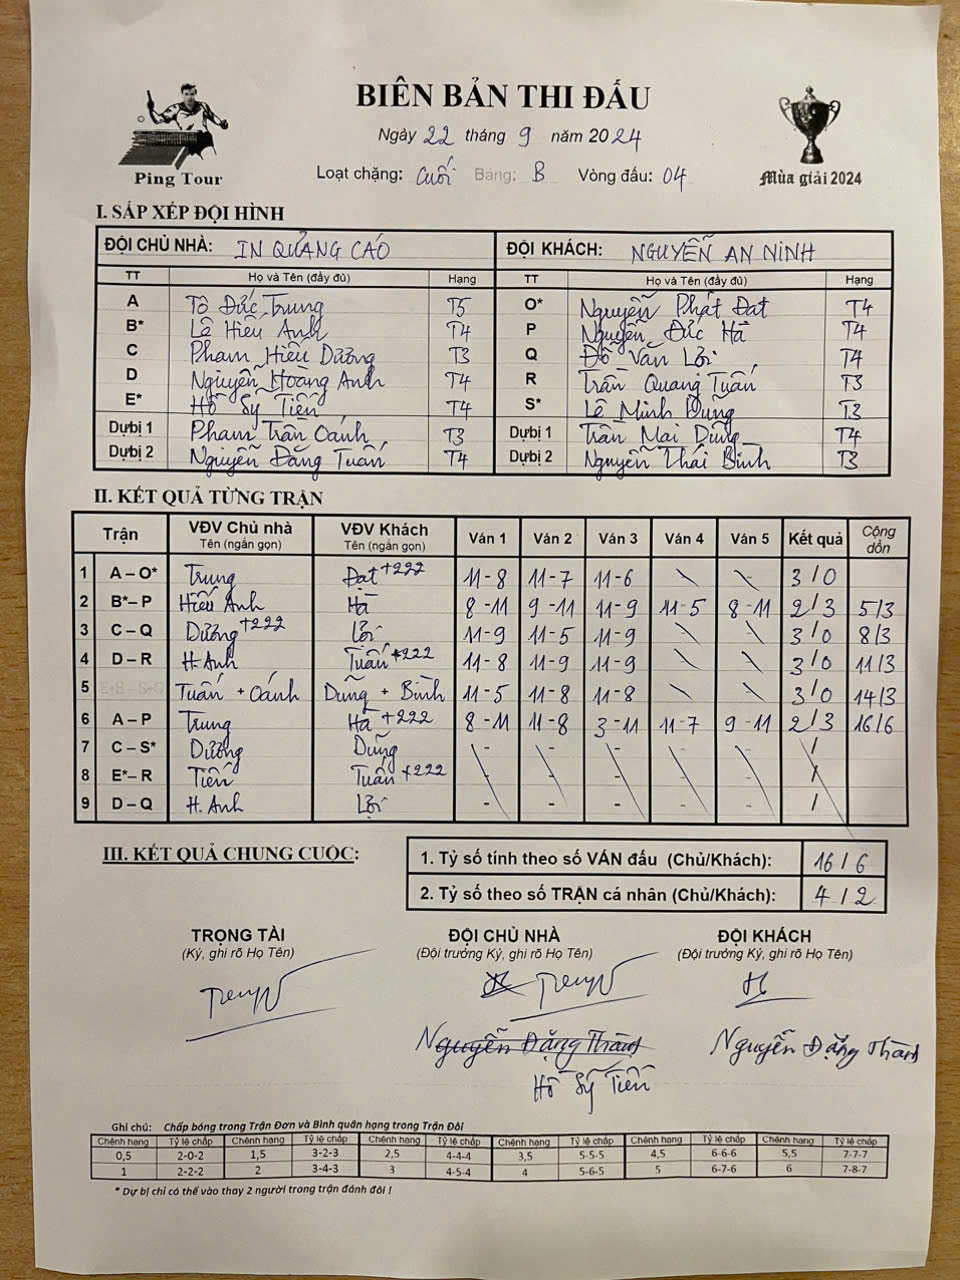 BIÊN BẢN THI ĐẤU
Ngày 22 tháng 9 năm 2024
Ping Tour
Loạt chặng: Cuối Bảng: B Vòng đấu: 04
Mùa giải 2024
I. SẮP XẾP ĐỘI HÌNH
ĐỘI CHỦ NHÀ: IN QUẢNG CÁO ĐỘI KHÁCH: NGUYỄN AN NINH
TT Họ và Tên (đầy đủ) Hạng TT Họ và Tên (đầy đủ) Hạng
A Tô Đức Trung T5 O* Nguyễn Phát Đạt T4
B* Lê Hiếu Anh T4 P Nguyễn Đức Hà T4
C Phạm Hiếu Dương T3 Q Đỗ Văn Lợi T4
D Nguyễn Hoàng Anh T4 R Trần Quang Tuấn T3
E* Hồ Sỹ Tiến T4 S* Lê Minh Dũng T3
Dựbị 1 Phạm Trần Oánh T3 Dựbị 1 Trần Mai Dũng T4
Dựbị 2 Nguyễn Đăng Tuấn T4 Dựbị 2 Nguyễn Thái Bình T3
II. KẾT QUẢ TỪNG TRẬN
Trận VĐV Chủ nhà Tên (ngắn gọn) VĐV Khách Tên (ngắn gọn) Ván 1 Ván 2 Ván 3 Ván 4 Ván 5 Kết quả Cộng dồn
1 A – O* Trung Đạt +222 11-8 11-7 11-6 \ \ 3/0
2 B*– P Hiếu Anh Hà 8-11 9-11 11-9 11-5 8-11 2/3 5/3
3 C – Q Dương +222 Lợi 11-9 11-5 11-9 \ \ 3/0 8/3
4 D – R H.Anh Tuấn +222 11-8 11-9 11-9 \ \ 3/0 11/3
5 E+B – S+O Tuấn + Oánh Dũng + Bình 11-5 11-8 11-8 \ \ 3/0 14/3
6 A – P Trung Hà +222 8-11 11-8 3-11 11-7 9-11 2/3 16/6
7 C – S* Dương Dũng - - - - - /
8 E*– R Tiến Tuấn +222 - - - - - /
9 D – Q H.Anh Lợi - - - - - /
III. KẾT QUẢ CHUNG CUỘC:
1. Tỷ số tính theo số VÁN đấu (Chủ/Khách): 16/6
2. Tỷ số theo số TRẬN cá nhân (Chủ/Khách): 4/2
TRỌNG TÀI ĐỘI CHỦ NHÀ ĐỘI KHÁCH
(Ký, ghi rõ Họ Tên) (Đội trưởng Ký, ghi rõ Họ Tên) (Đội trưởng Ký, ghi rõ Họ Tên)
Nguyễn Đặng Thành Nguyễn Đặng Thành
Hồ Sỹ Tiến
Ghi chú: Chấp bóng trong Trận Đơn và Bình quân hạng trong Trận Đôi
Chênh hạng Tỷ lệ chấp Chênh hạng Tỷ lệ chấp Chênh hạng Tỷ lệ chấp Chênh hạng Tỷ lệ chấp Chênh hạng Tỷ lệ chấp Chênh hạng Tỷ lệ chấp
0,5 2-0-2 1,5 3-2-3 2,5 4-4-4 3,5 5-5-5 4,5 6-6-6 5,5 7-7-7
1 2-2-2 2 3-4-3 3 4-5-4 4 5-6-5 5 6-7-6 6 7-8-7
* Dự bị chỉ có thể vào thay 2 người trong trận đánh đôi !